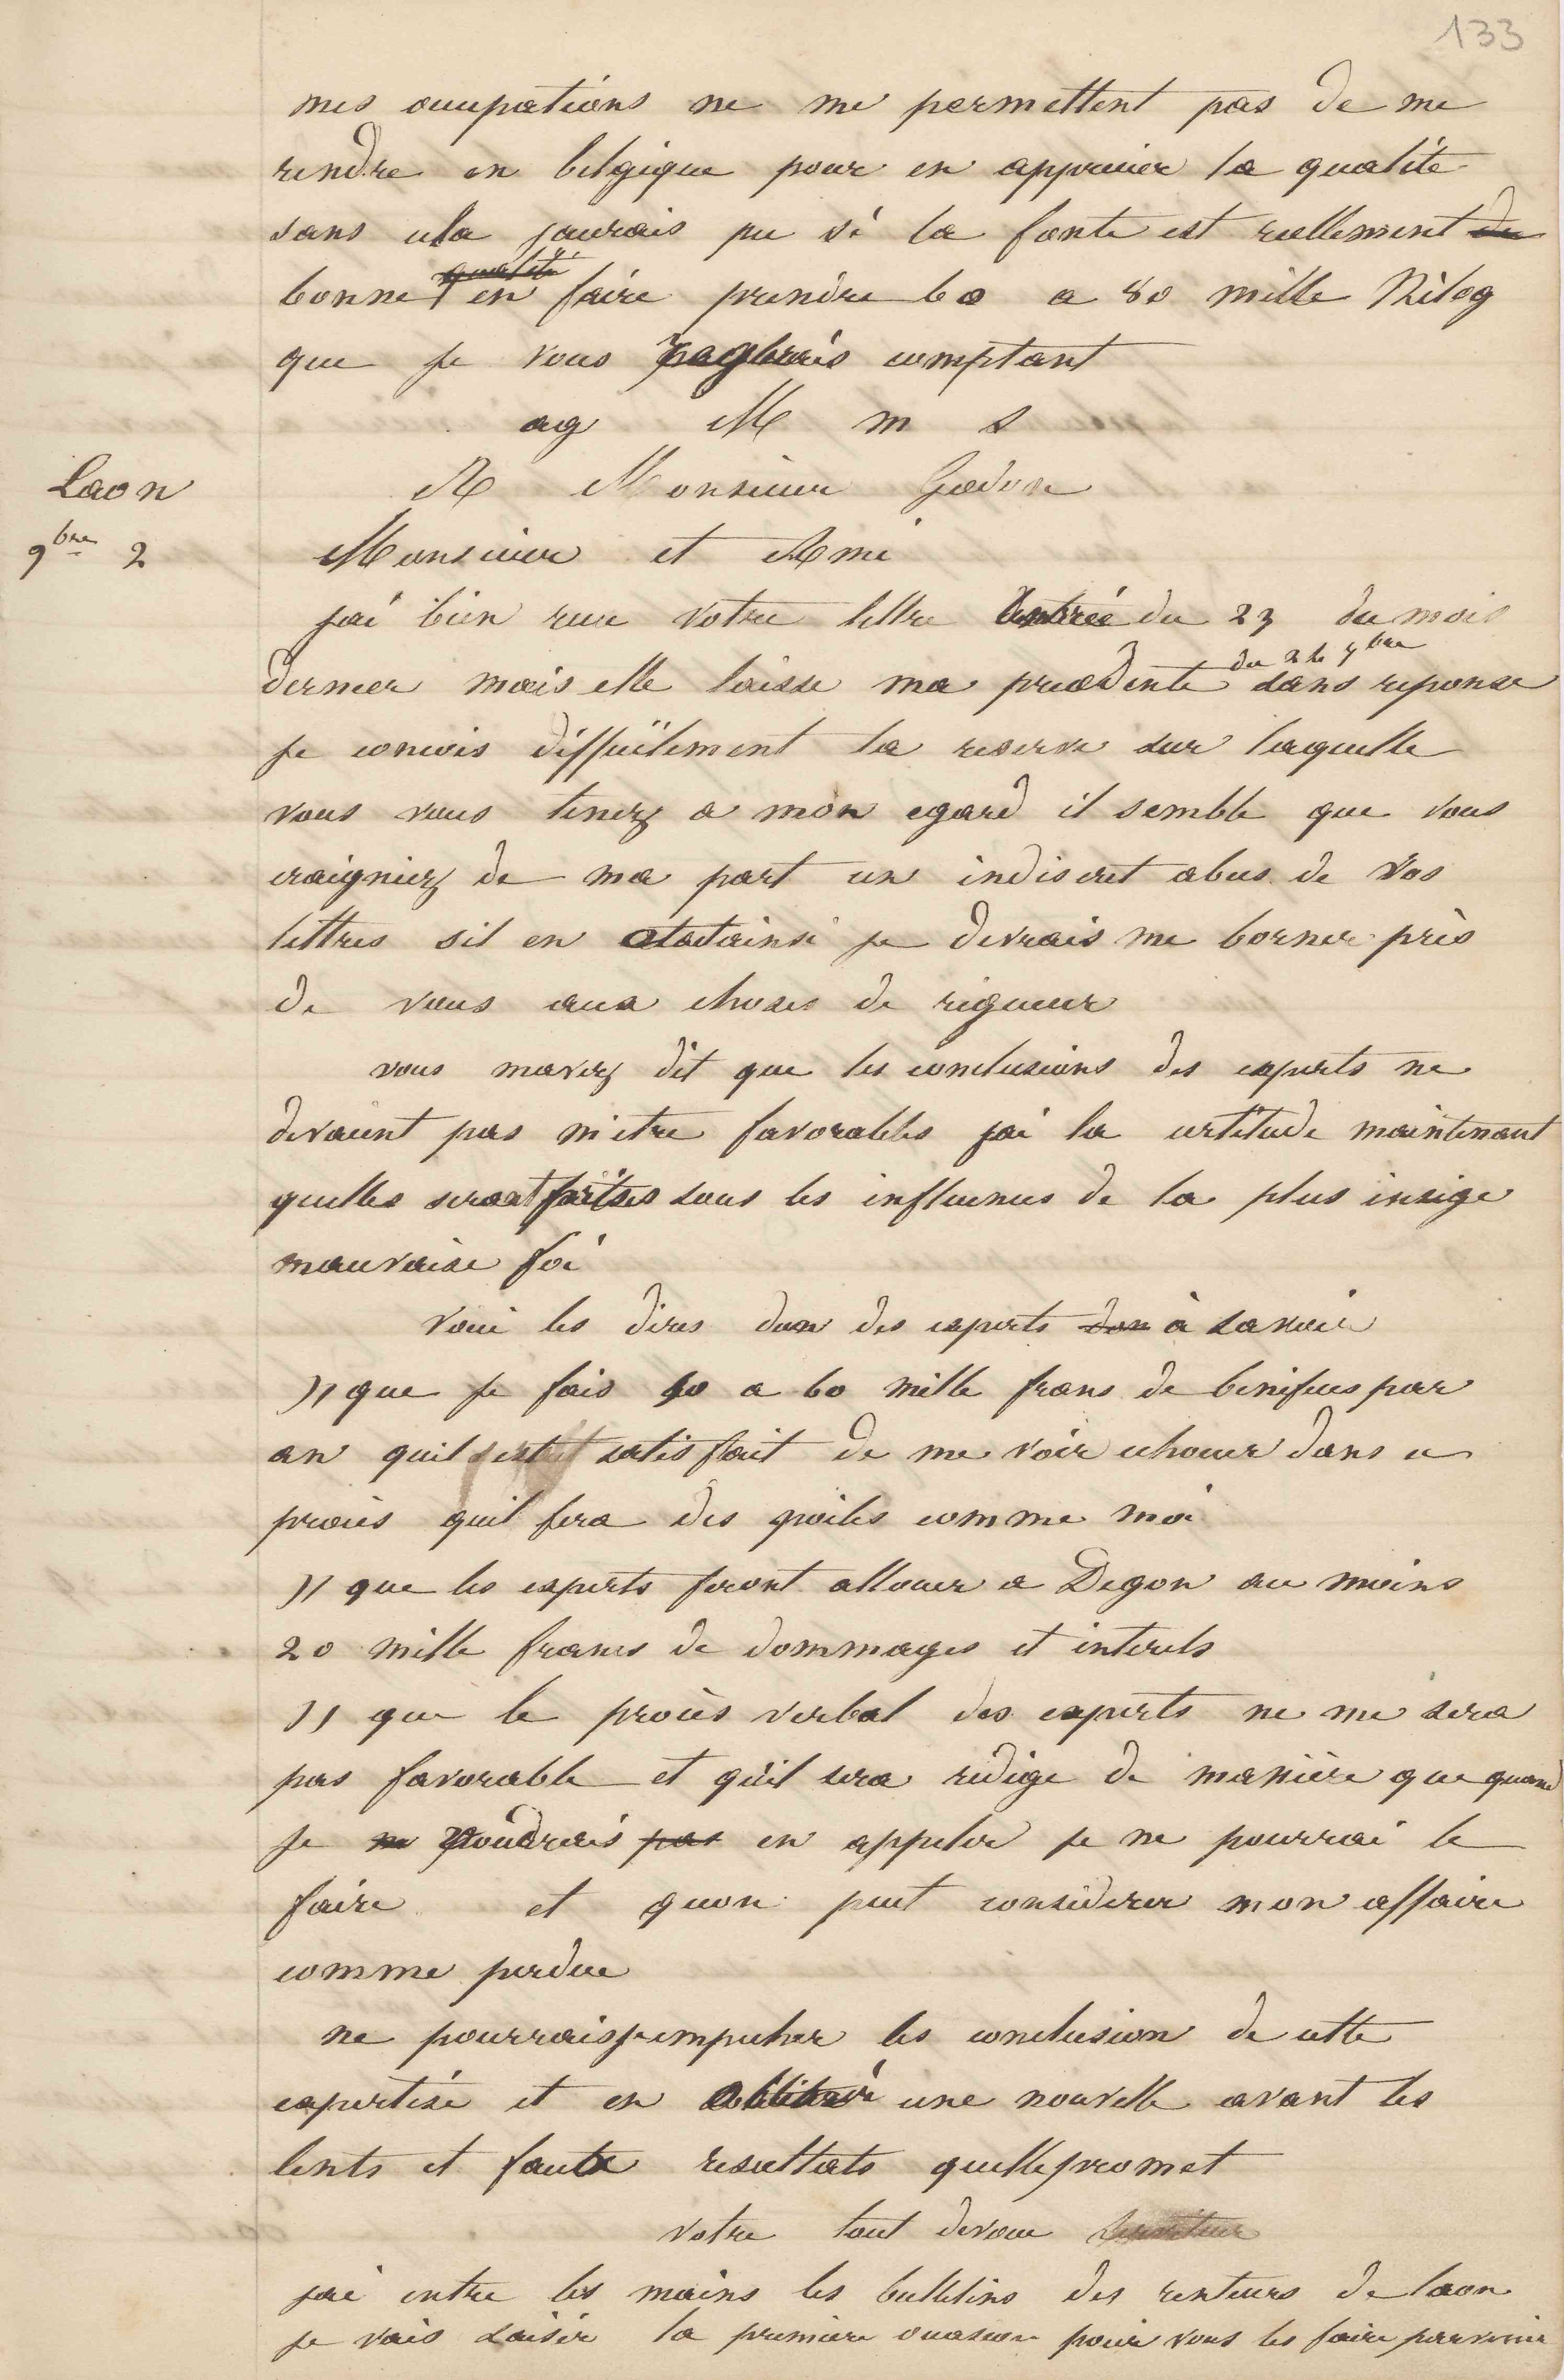 133
mes occupations ne me permettent pas de me
rendre en belgique pour en apprecier la qualité
sans cela jaurais pu si la fonte est reellement de
bonne qualité en faire prendre 60 a 80 mille Kilog
que je vous payerais comptant
ag M m s
Laon
A Monsieur Godon
9bre 2
Monsieur et Ami
jai bien recu votre lettre du 23 du mois
dernier mais elle laisse ma precedente du 2 de 7bre sans reponse
je concois difficilement la reserve sur laquelle
vous vous tenez a mon egard il semble que vous
craigniez de ma part un indiscret abus de vos
lettres sil en etait ainsi je devrais me borner près
de vous aux choses de rigueur
vous mavez dit que les conclusions des experts ne
devaient pas m'etre favorables jai la certitude maintenant
quelles seront faites sous les influences de la plus insige
mauvaise foi
voici les dires dun des experts dun à savoir
)) que je fais 50 a 60 mille frans de benifices par
an quil est satisfait de me voir echouer dans ce
procès quil fera des poiles comme moi
)) que les experts feront allouer a Degon au moins
20 mille francs de dommages et interets
)) que le procès verbal des experts ne me sera
pas favorable et qu'il sera redige de manière que quand
je ne voudrais pas en appeler je ne pourrai le
faire et quon peut considerer mon affaire
comme perdue
ne pourrais je empecher les conclusion de cette
expertise et en une nouvelle avant les
lents et resultats quelle promet
votre tout devoue serviteur
jai entre les mains les bulletins des renteurs de laon
je vais saisir la premiere occasion pour vous les faire parvenir